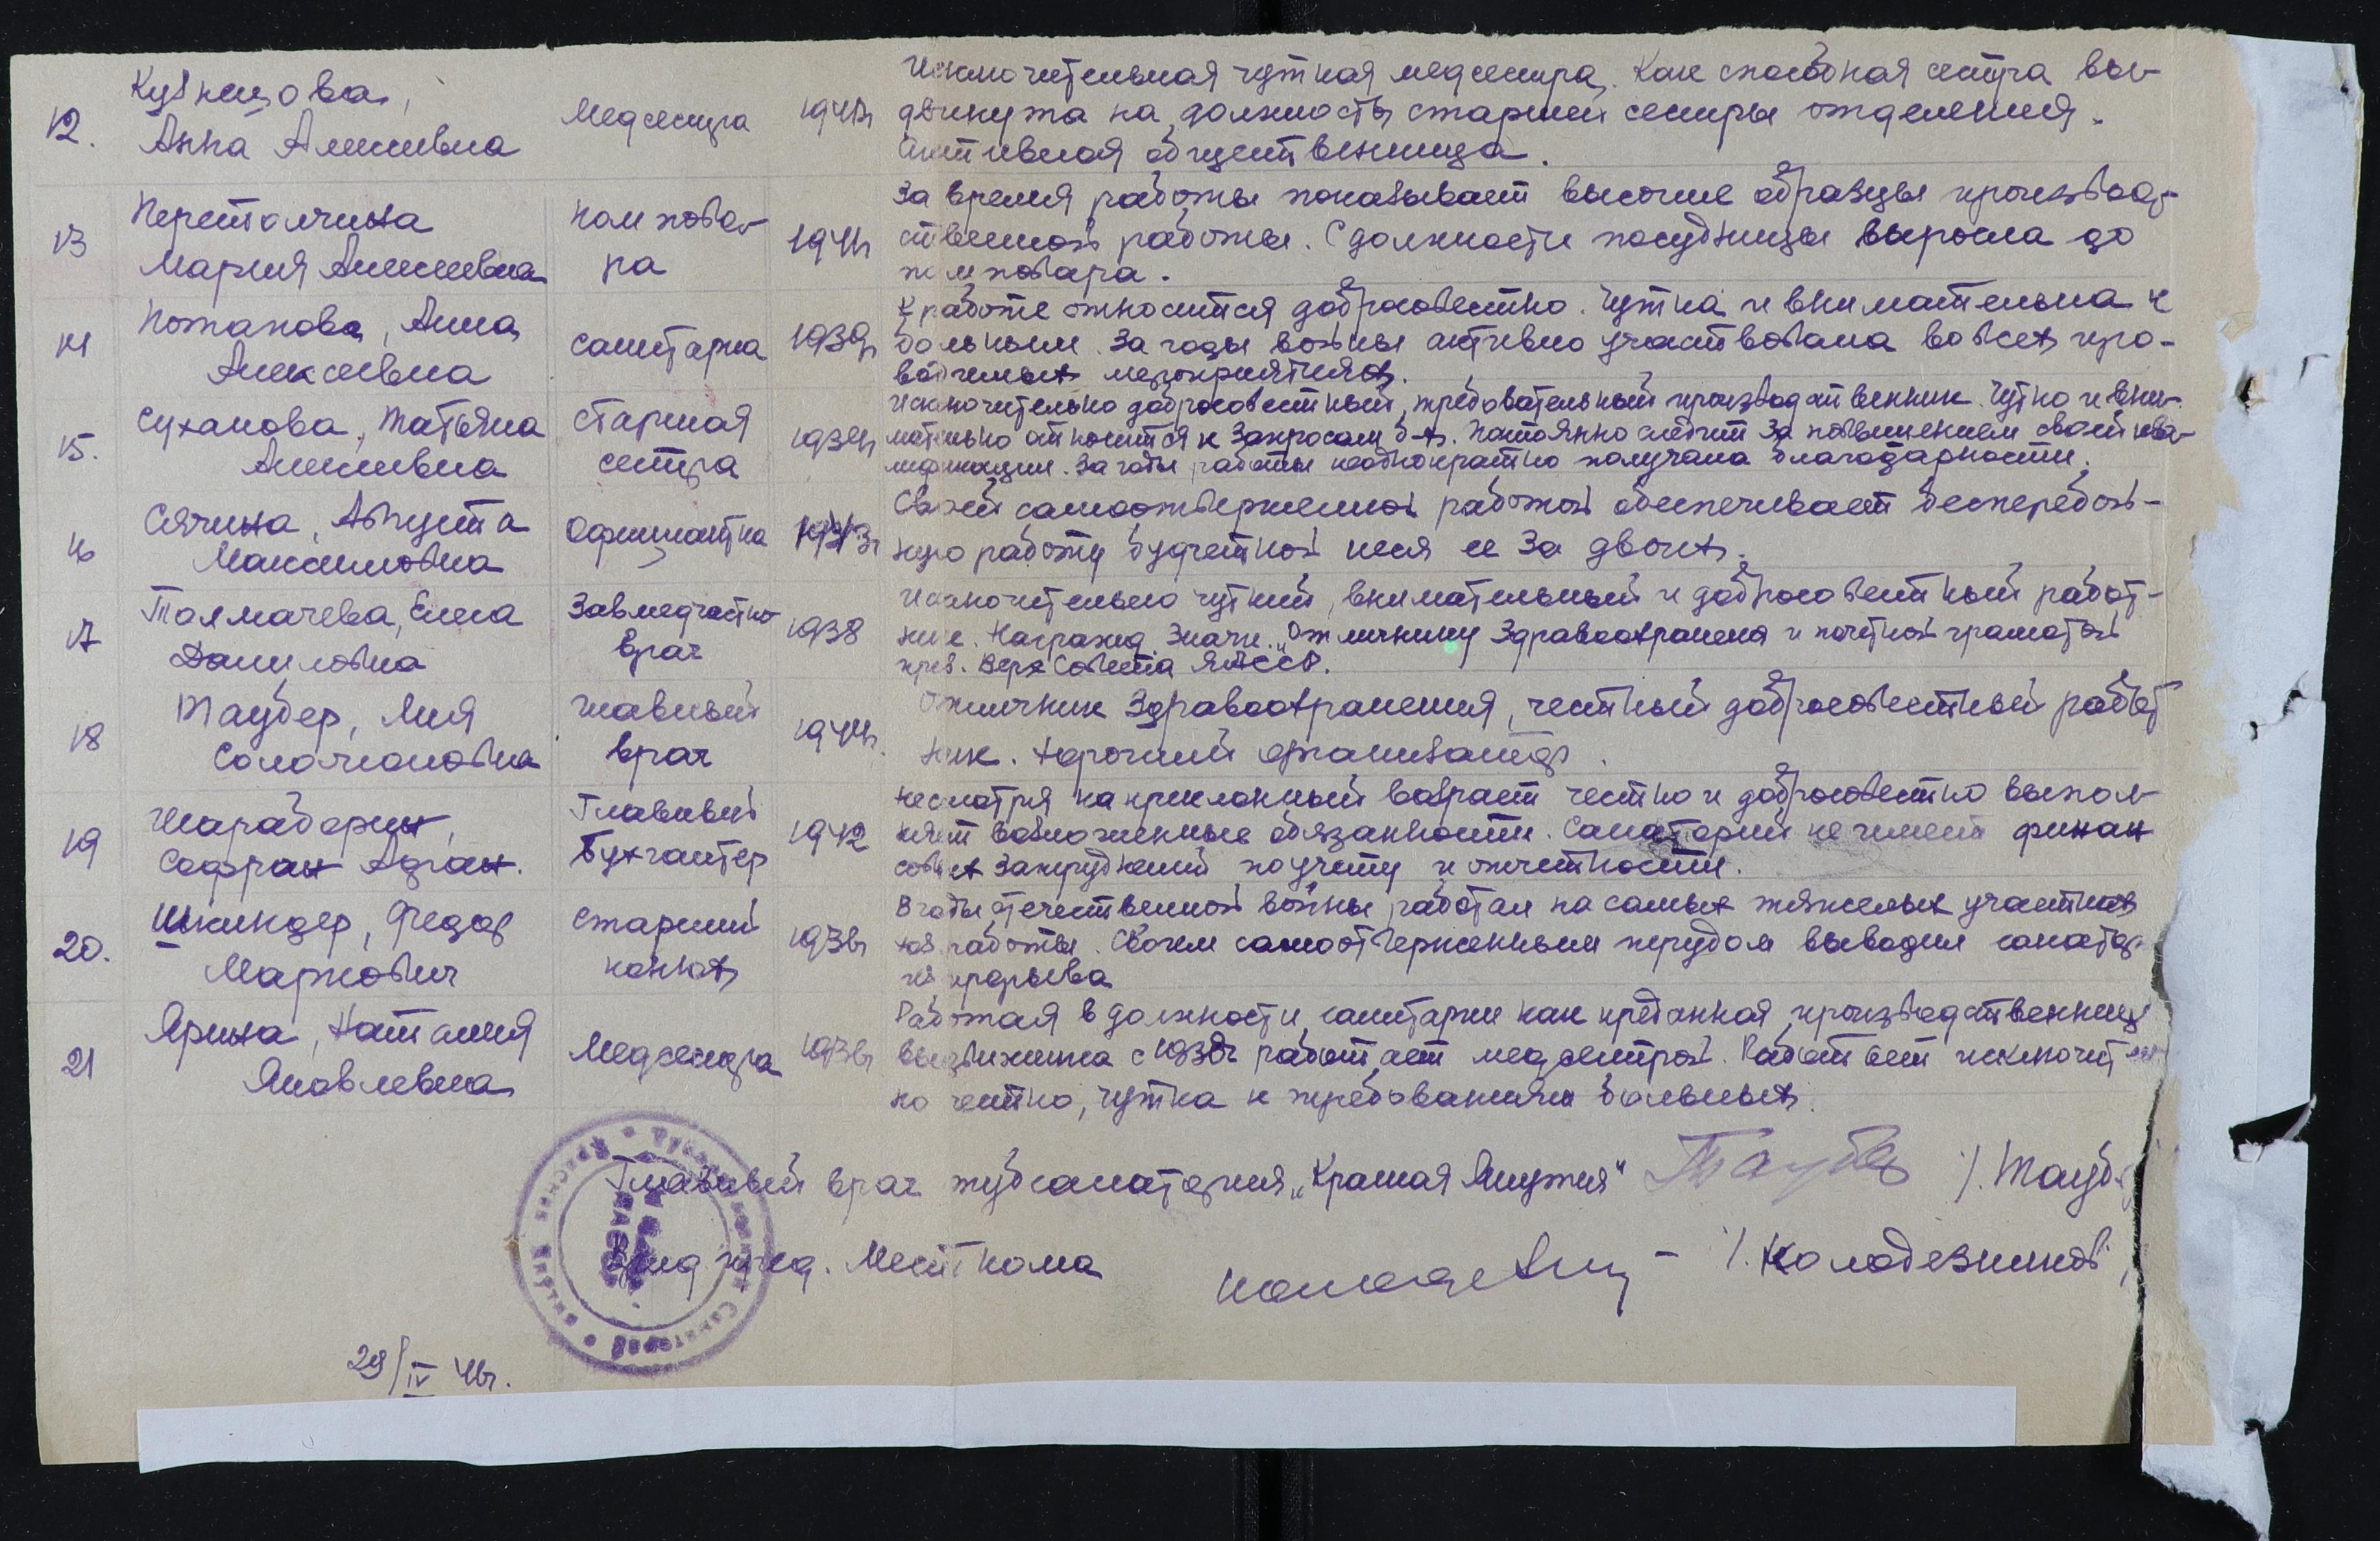 12. Кузнецова, Анна Алексеевна Медсестра 1941г Исключительная чуткая медсестра. Как способная сестра вы-
двинута на должность старшей сестры отделения.
Активная общественница.
13 Перетолчина Мария Алексеевна пом повара 1941г За время работы показывает высокие образцы производ-
ственной работы. С должности посудницы выросла до
пом повара.
14 Потапова, Анна Алексеевна санитарка 1939г К работе относится добросовестно. Чутка и внимательна к
больным. За годы войны активно участвовала во всех про-
водимых мероприятиях.
15. Суханова, Татьяна Алексеевна старшая сестра Исключительно добросовестный, требовательный производственник. Чутко и вни-
мательно относится к запросам б-х. Постоянно следит за повышением своей ква-
лификации. За годы работы неоднократно получала благодарности.
16 Сячина, Августа Максимовна Официантка 1943г Своей самоотверженной работой обеспечивает бесперебой-
ную работу буфетной неся ее за двоих.
17 Толмачева, Елена Даниловна Завмедчастью врач 1938 Исключительно чуткий, внимательный и добросовестный работ-
ник. Награжд. Значк. „Отличнику Здравоохранения и почетной грамотой
през. Верх Совета ЯАССР.
18 Таубер, Лия Соломоновна главный врач 1944г. Отличник Здравоохранения, честный добросовестный работ
ник. Хороший организатор.
19 Шараборин, Софрон Афан. Главный Бухгалтер 1942 Несмотря на преклонный возраст честно и добросовестно выпол
няет возложенные обязанности. Санаторий не имеет финан
совых затруднений по учету и отчетности.
20. Шкиндер, Федор Маркович старший конюх 1936г В годы отечественной войны работал на самых тяжелых участках
хоз работы. Своим самоотверженным трудом выводил санатор.
из прорыва
21 Ярина, Наталия Яковлевна Медсестра 1936г Работая в должности санитарки как преданная производственница
выдвиженка с 1938г работает медсестрой. Работает исключитель
но честно, чутка к требованиям больных.
Главный врач тубсанатория „Красная Якутия" Таубер /. Таубер
Врид пред. Месткома /. Колодезников
29/IV 46г.